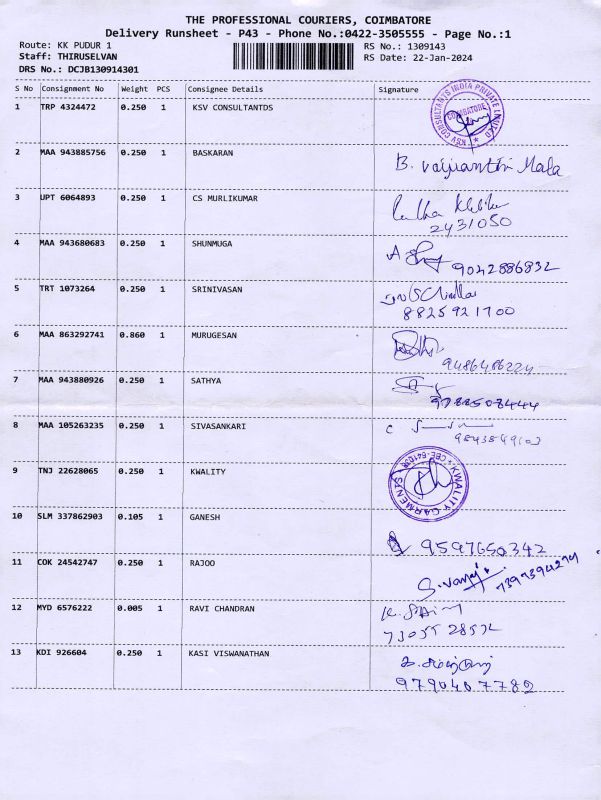 THE PROFESSIONAL COURIERS, COIMBATORE
Delivery Runsheet - P43 - Phone No.:0422-3505555 - Page No.:1
Route: KK PUDUR 1 RS No.: 1309143
Staff: THIRUSELVAN RS Date: 22-Jan-2024
DRS No.: DCJB130914301
S No Consignment No Weight PCS Consignee Details Signature
1 TRP 4324472 0.250 1 KSV CONSULTANTDS
KSV CONSULTANTS INDIA PRIVATE LIMITED
COIMBATORE
2 MAA 943885756 0.250 1 BASKARAN
B. Vaijianthi Mala
3 UPT 6064893 0.250 1 CS MURLIKUMAR
2431050
4 MAA 943680683 0.250 1 SHUNMUGA
9042886832
5 TRT 1073264 0.250 1 SRINIVASAN
8825921700
6 MAA 863292741 0.860 1 MURUGESAN
9486486224
7 MAA 943880926 0.250 1 SATHYA
9788508444
8 MAA 105263235 0.250 1 SIVASANKARI
9 TNJ 22628065 0.250 1 KWALITY
KWALITY GARMENTS
10 SLM 337862903 0.105 1 GANESH
9597650342
11 COK 24542747 0.250 1 RAJOO
12 MYD 6576222 0.005 1 RAVI CHANDRAN
73055 28532
13 KDI 926604 0.250 1 KASI VISWANATHAN
9790407782